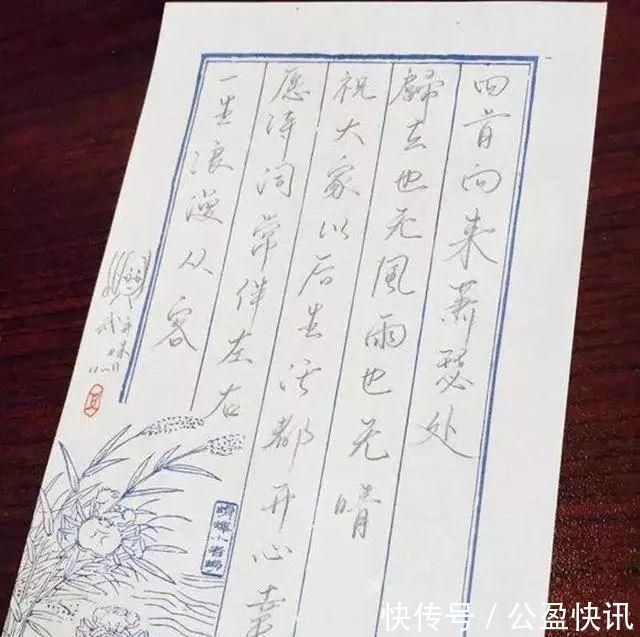 回首向来萧瑟处
归去也无風雨也无晴
祝大家以后生活都开心幸
愿诗词常伴左右
一生浪漫从容
快传号/公盈快讯